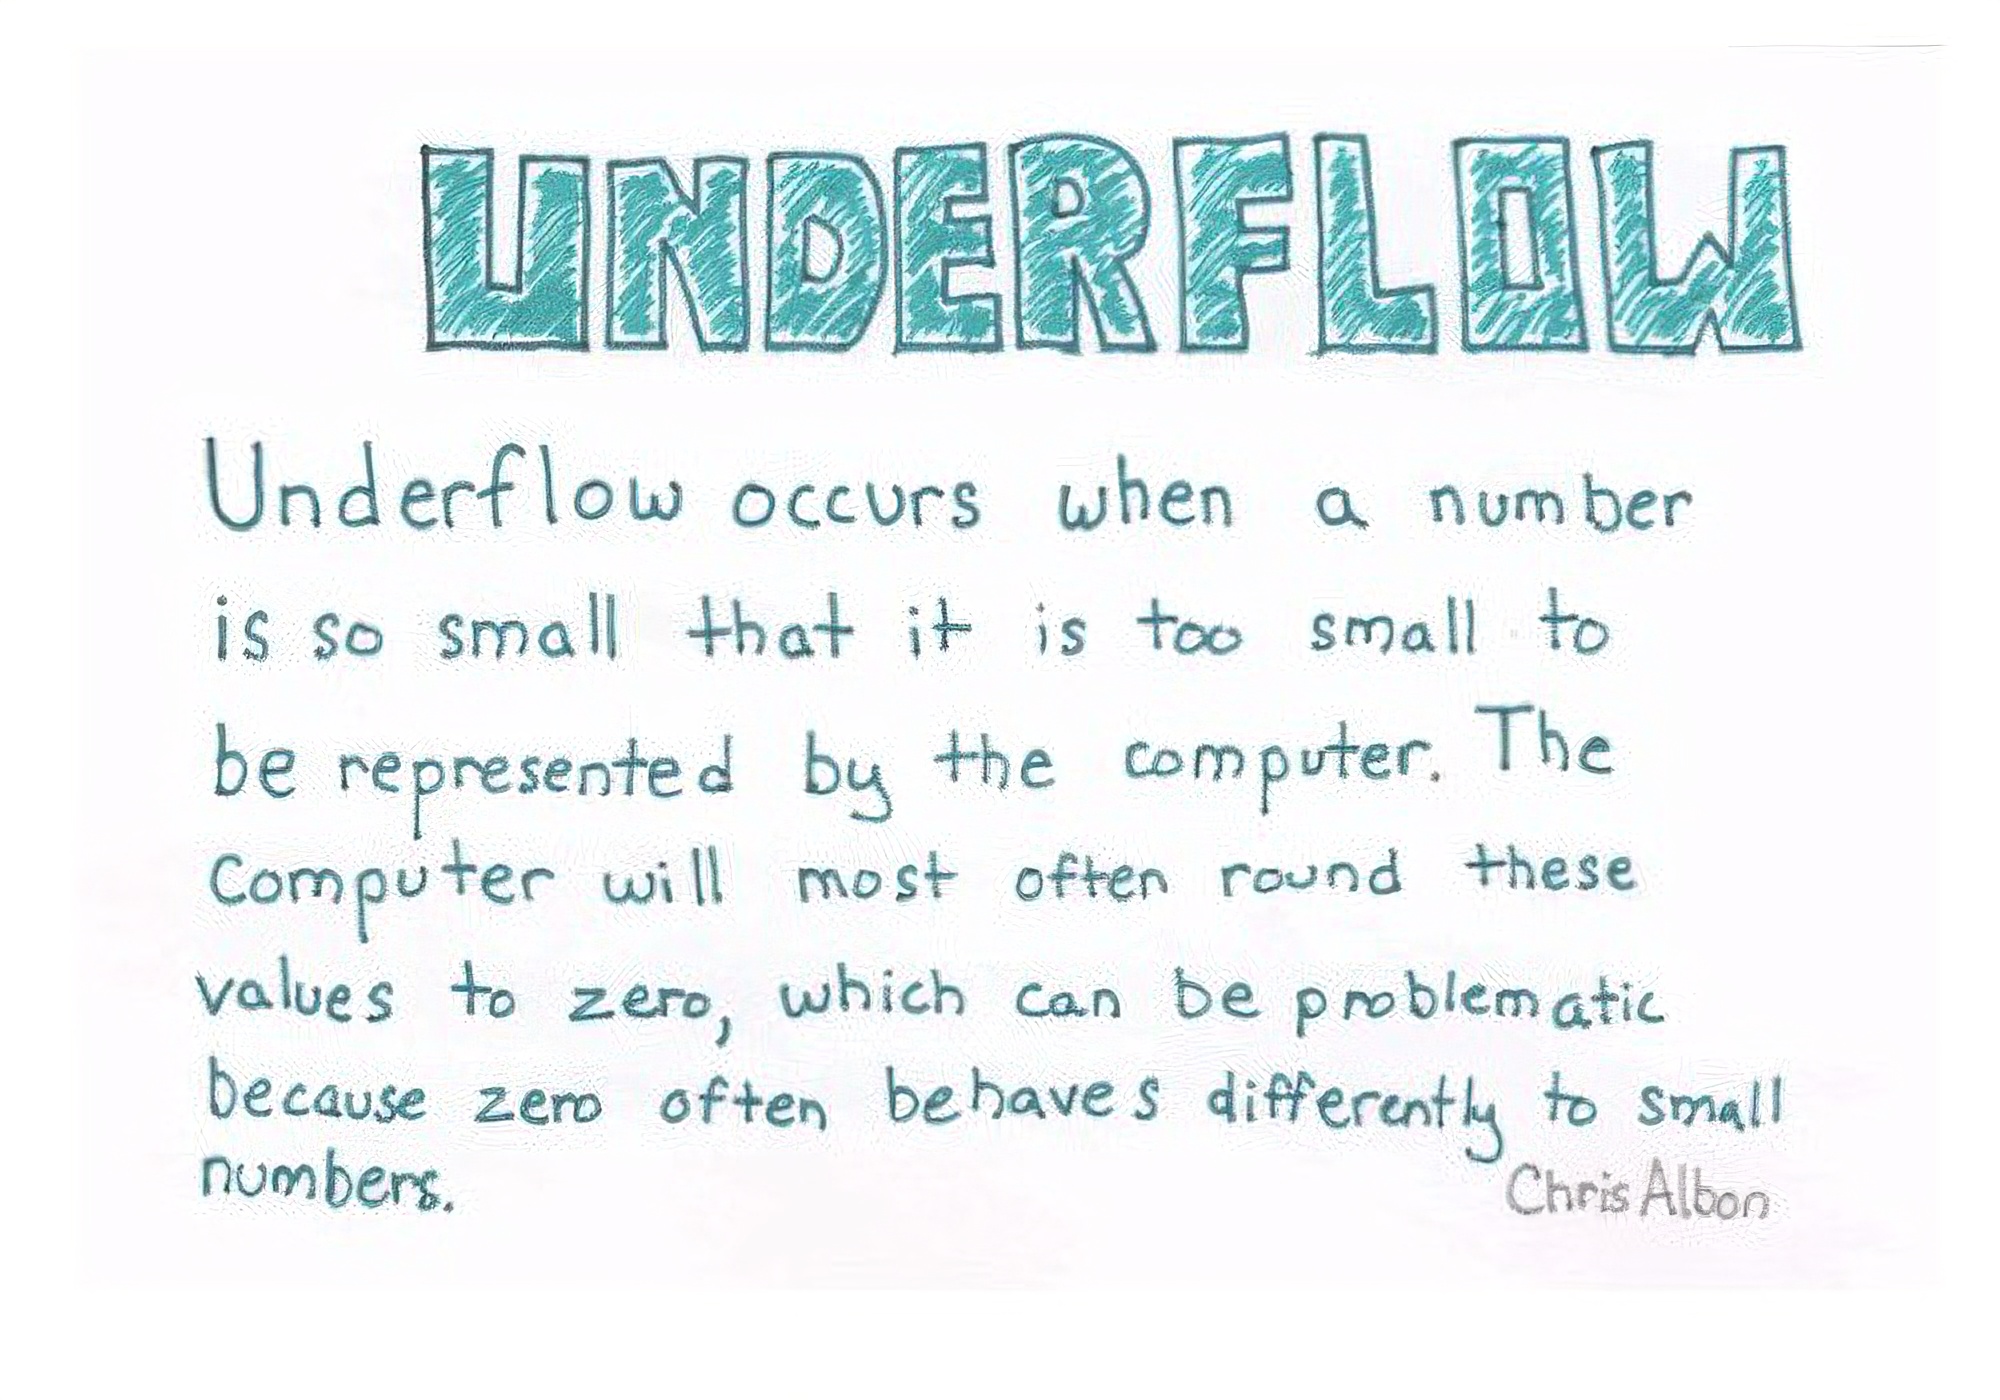 UNDERFLOW
Underflow occurs when a number
is so small that it is too small to
be represented by the computer. The
Computer will most often round these
values to zero, which can be problematic
because zero often behaves differently to small
numbers.
Chris Albon